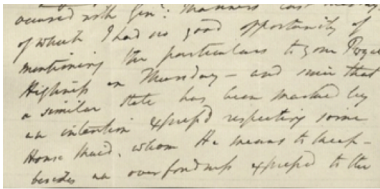 occurred with Gen.l Manners last
of which I had no good opportunity of
mentioning the particulars to your Royal
Highness on Thursday – and since that
a similar state has been marked by
an intention express'd respecting some
House Maid, whom He means to keep –
besides an over fondness express'd to the